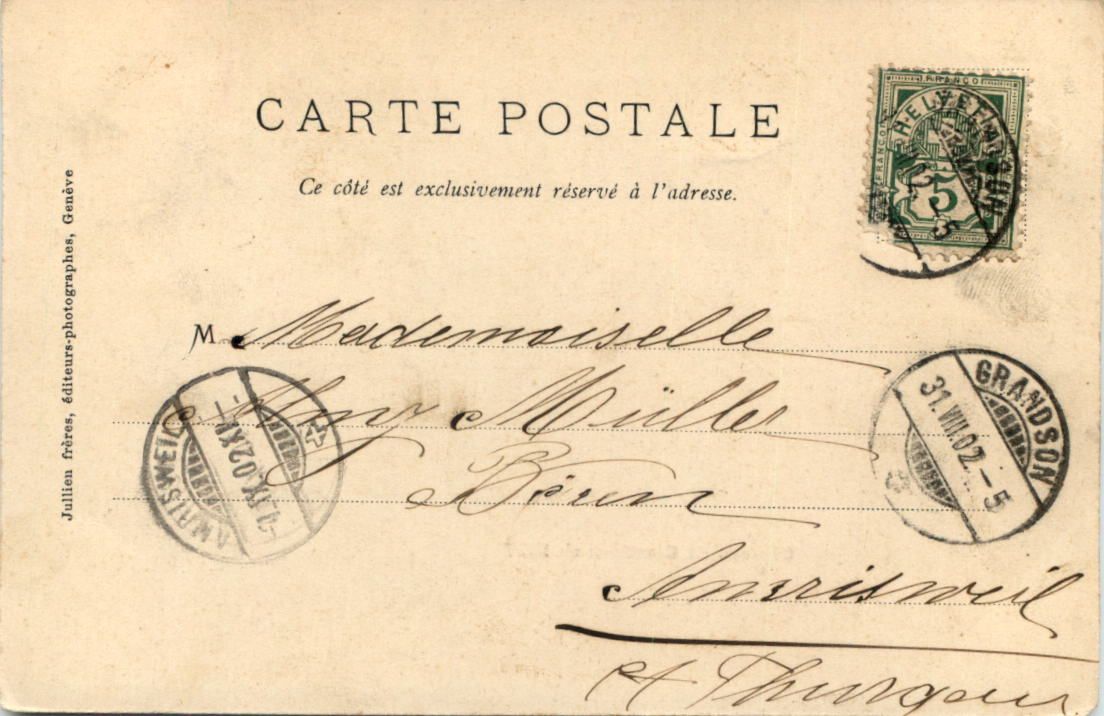 CARTE POSTALE
Ce côté est exclusivement réservé à l'adresse.
Jullien frères, éditeurs-photographes, Genève
FRANCO
HELVETIA
FRANCO
5
GRANDSON
31.VIII.02.-5
M Mademoiselle
Müller
Amrisweil
Ct Thurgau
AMRISWEIL
-1.IX.02.XI-